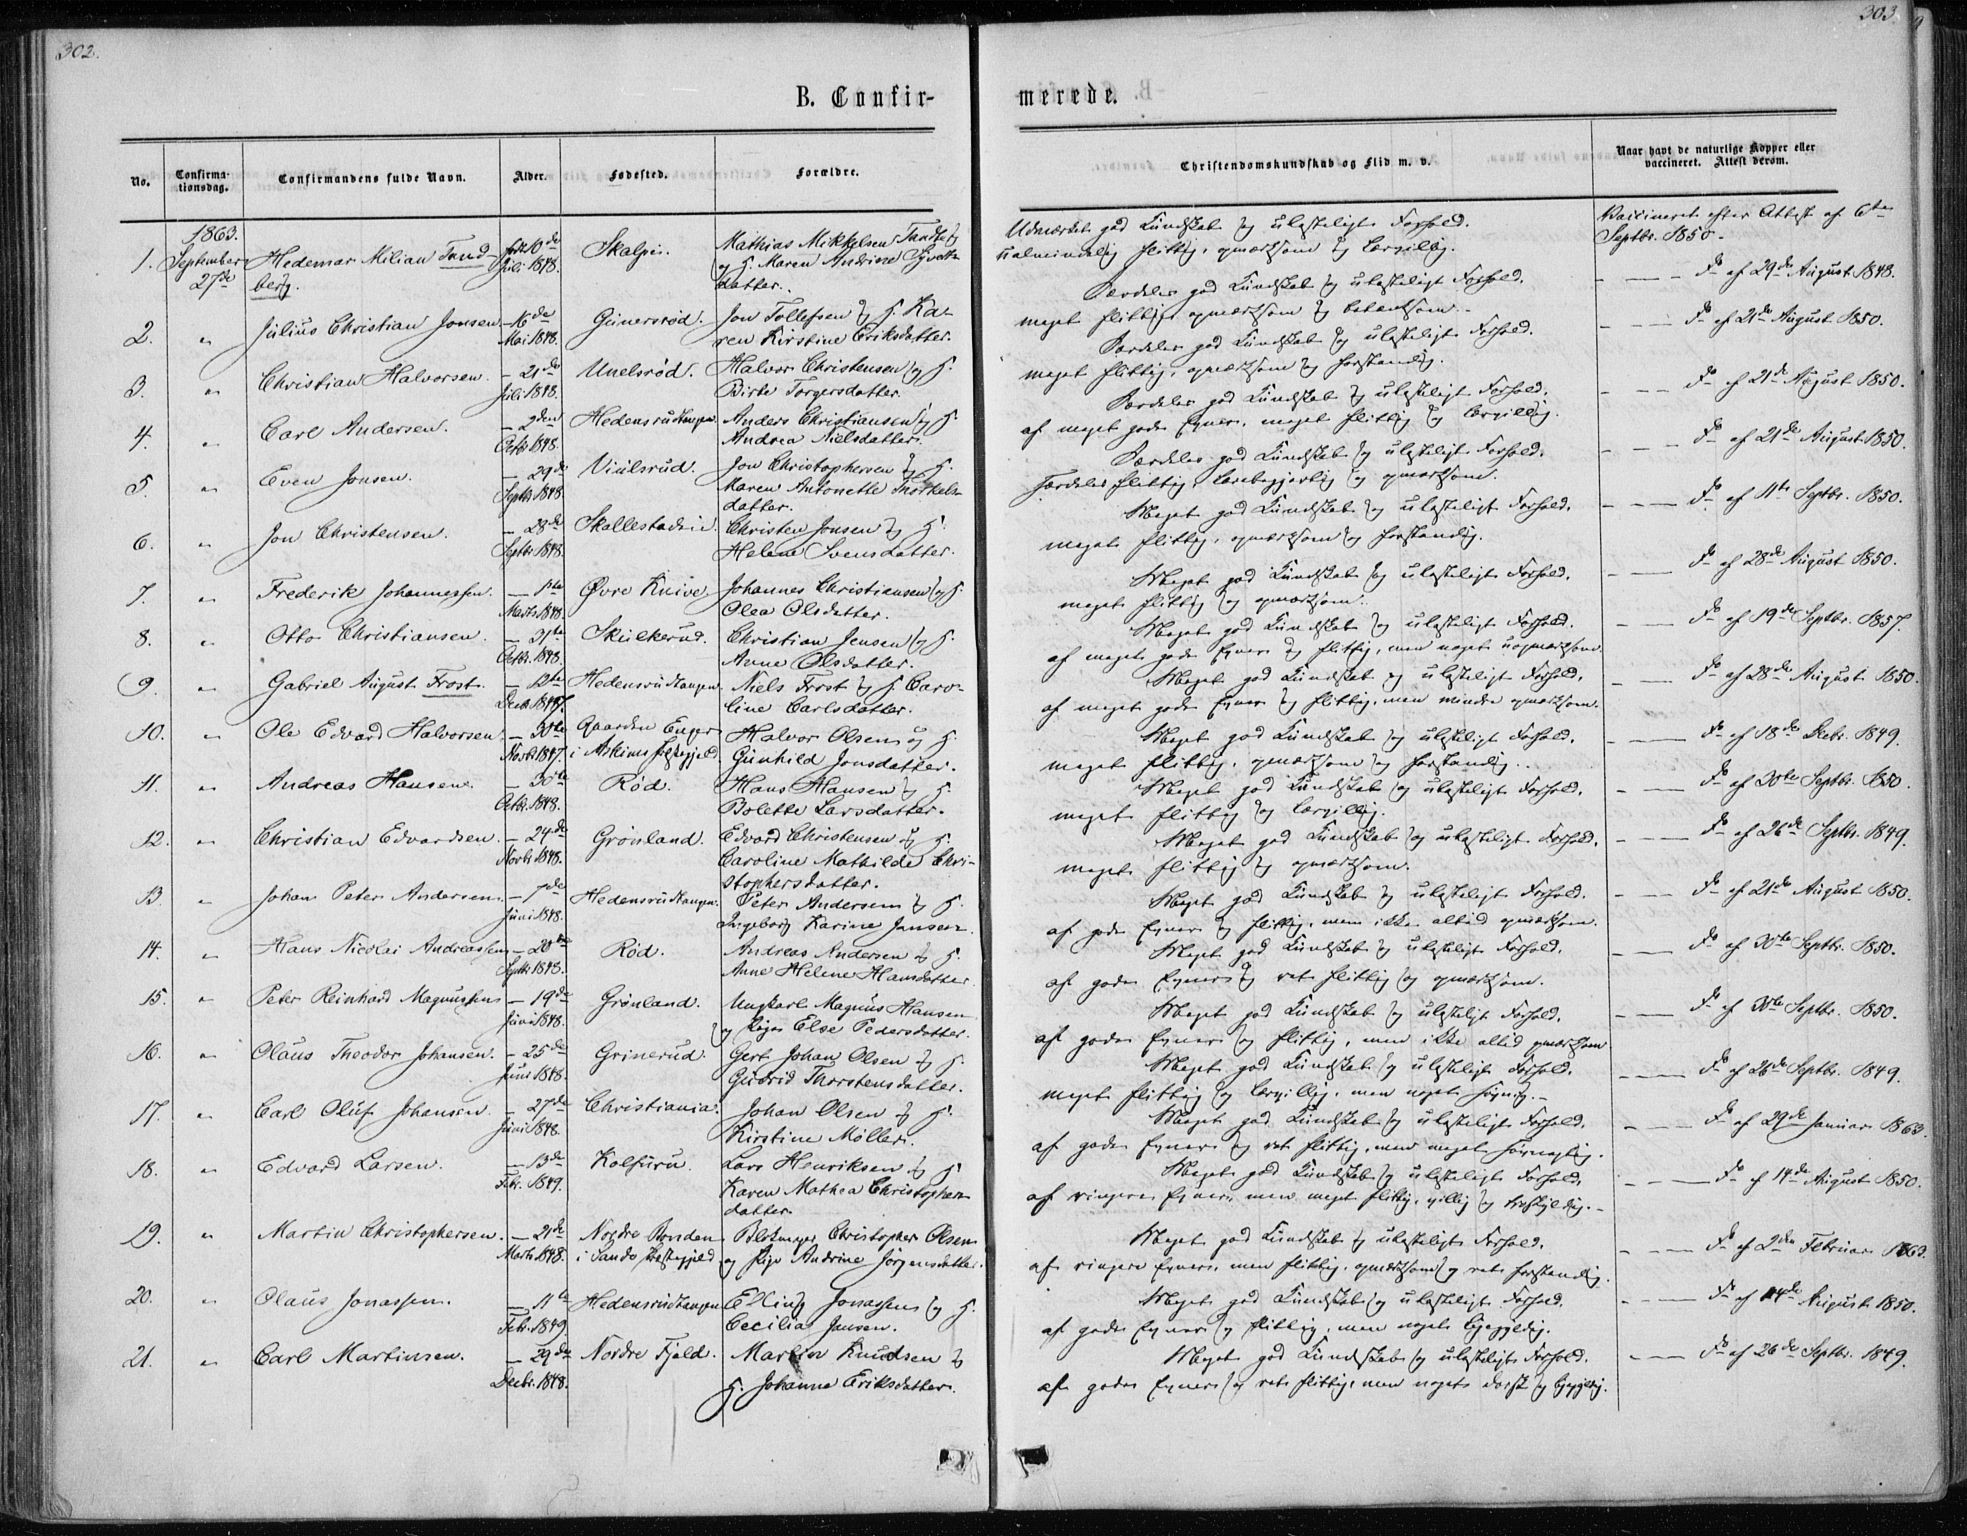 302.
303.
B. Confir-
merede.
No.
Confirma-
tionsdag.
Confirmandens fulde Navn.
Alder.
Fødested.
Forældre.
Christendomskundskab og Flid m. v.
Naar havt de naturlige Kopper eller
vaccineret. Attest derom.
1863.
1. September Hedemar Milian Tand- født 10de Skalpii. Mathias Mikkelsen
27de berg. Juli 1848. og H. Maren Andrine
datter.
Udmærket god Kundskab og ulasteligt Forhold. Vaccineret efter Attest af 6te
ualmindelig flittig, opmærksom og lærvillig. Septbr. 1850.
2. " Julius Christian Jonsen. — 16de Gunersrød. Jon Tollefsen og H. Ka-
Mai 1848. ren Kirstine Eriksdatter.
Særdeles god Kundskab og ulasteligt Forhold. — — Do af 29de August 1848.
meget flittig, opmærksom og betænksom.
3. " Christian Halvorsen. — 21de Unelsrød. Halvor Christensen og H.
Juli 1848. Birte Torgersdatter.
Særdeles god Kundskab og ulasteligt Forhold. — — Do af 21de August 1850.
meget flittig, opmærksom og forstandig.
4. " Carl Andersen. — 2den Hedensrudtangen. Anders Christiansen og H.
Octbr. 1848. Andrea Nielsdatter.
Særdeles god Kundskab og ulasteligt Forhold. — — Do af 21de August 1850.
af meget gode Evner, meget flittig og lærvillig.
5. " Even Jonsen. — 29de Viulsrud. Jon Christophersen og H.
Septbr. 1848. Maren Antonette Thorkels-
datter.
Særdeles god Kundskab og ulasteligt Forhold. — — Do af 21de August 1850.
særdeles flittig, lærebegjærlig og opmærksom.
6. " Jon Christensen. — 28de Skallestad Christen Jonsen og H.
Septbr. 1848. Helene Svensdatter.
Meget god Kundskab og ulasteligt Forhold. — — Do af 11te Septbr. 1850.
meget flittig, opmærksom og forstandig.
7. " Frederik Johannessen. — 1ste Øvre Knive. Johannes Christiansen og H.
Marts 1848. Olea Olsdatter.
Meget god Kundskab og ulasteligt Forhold. — — Do af 28de August 1850.
meget flittig og opmærksom.
8. " Otto Christiansen. — 31te Skulkerud. Christian Jensen og H.
Octbr. 1848. Anne Olsdatter.
Meget god Kundskab og ulasteligt Forhold. — — Do af 19de Septbr. 1857.
af meget gode Evner og flittig, men noget uopmærksom.
9. " Gabriel August Frost. — 12te Hedensrudtangen. Niels Frost og H. Caro-
Decb. 1847. line Carlsdatter.
Meget god Kundskab og ulasteligt Forhold. — — Do af 28de August 1850.
af meget gode Evner og flittig, men mindre opmærksom.
10. " Ole Edvard Halvorsen. — 30te Gaarden Enger Halvor Olsen og H.
Novb. 1847. i Askims Prstegjeld. Gunhild Jonsdatter.
Meget god Kundskab og ulasteligt Forhold. — — Do af 18de Octbr. 1849.
meget flittig, opmærksom og forstandig.
11. " Andreas Hansen. — 30te Rød. Hans Hansen og H.
Octbr. 1848. Bolette Larsdatter.
Meget god Kundskab og ulasteligt Forhold. — — Do af 30te Septbr. 1850.
meget flittig og lærvillig.
12. " Christian Edvardsen. — 24de Grønland. Edvard Christensen og H.
Novbr. 1848. Caroline Mathilde Chri-
stophersdatter.
Meget god Kundskab og ulasteligt Forhold. — — Do af 26de Septbr. 1849.
meget flittig og opmærksom.
13. " Johan Peter Andersen. — 7de Hedensrudtangen. Peter Andersen og H.
Juni 1848. Ingeborg Karine Jansen.
Meget god Kundskab og ulasteligt Forhold. — — Do af 21de August 1850.
af gode Evner og flittig, men ikke altid opmærksom.
14. " Hans Nicolai Andreassen — 20de Rød. Andreas Andersen og H.
Septbr. 1848. Anne Helene Hansdatter.
Meget god Kundskab og ulasteligt Forhold. — — Do af 30te Septbr. 1850.
af gode Evner og ret flittig og opmærksom.
15. " Peter Reinhard Magnussen — 19de Grønland. Ungkarl Magnus Hansen
Juni 1848. og Pige Else Pedersdatter.
Meget god Kundskab og ulasteligt Forhold. — — Do af 30te Septbr. 1850.
af gode Evner og flittig, men ikke altid opmærksom
16. " Olaus Theodor Johansen. — 25de Grinerud. Gert Johan Olsen og H.
Juni 1848. Gudrid Thorstensdatter.
Meget god Kundskab og ulasteligt Forhold. — — Do af 26de Septbr. 1849.
meget flittig og lærvillig, men noget
17. " Carl Oluf Johansen. — 27de Christiania. Johan Olsen og H.
Juni 1848. Kirstine Møller.
Meget god Kundskab og ulasteligt Forhold. — — Do af 29de Januar 1863.
af gode Evner og ret flittig, men meget
18. " Edvard Larsen. — 13de Kolfuru. Lars Henriksen og H.
Febr. 1849. Karen Mathea Christopher-
datter.
Meget god Kundskab og ulasteligt Forhold. — — Do af 14de August 1850.
af ringere Evner, men meget flittig, villig og
19. " Martin Christophersen. — 21de Nordre Ronden Christopher Olsen
Marts 1848. i Sande Prstegjeld og Pige Andrine Jörgensdatter.
Meget god Kundskab og ulasteligt Forhold. — — Do af 2den Februar 1863.
af ringere Evner, men flittig, opmærksom og ret forstandig.
20. " Olaus Jonassen. — 11te Hedensrudtangen Elling Jonassen og H.
Febr. 1849. Cecilia Jansen.
Meget god Kundskab og ulasteligt Forhold. — — Do af 14de August 1850.
af gode Evner og flittig, men noget
21. " Carl Martinsen. — 29de Nordre Fjeld. Martin Knudsen og
Decbr. 1848. H. Johanne Eriksdatter.
Meget god Kundskab og ulasteligt Forhold. — — Do af 26de Septbr. 1849.
af gode Evner og ret flittig, men noget dorsk og